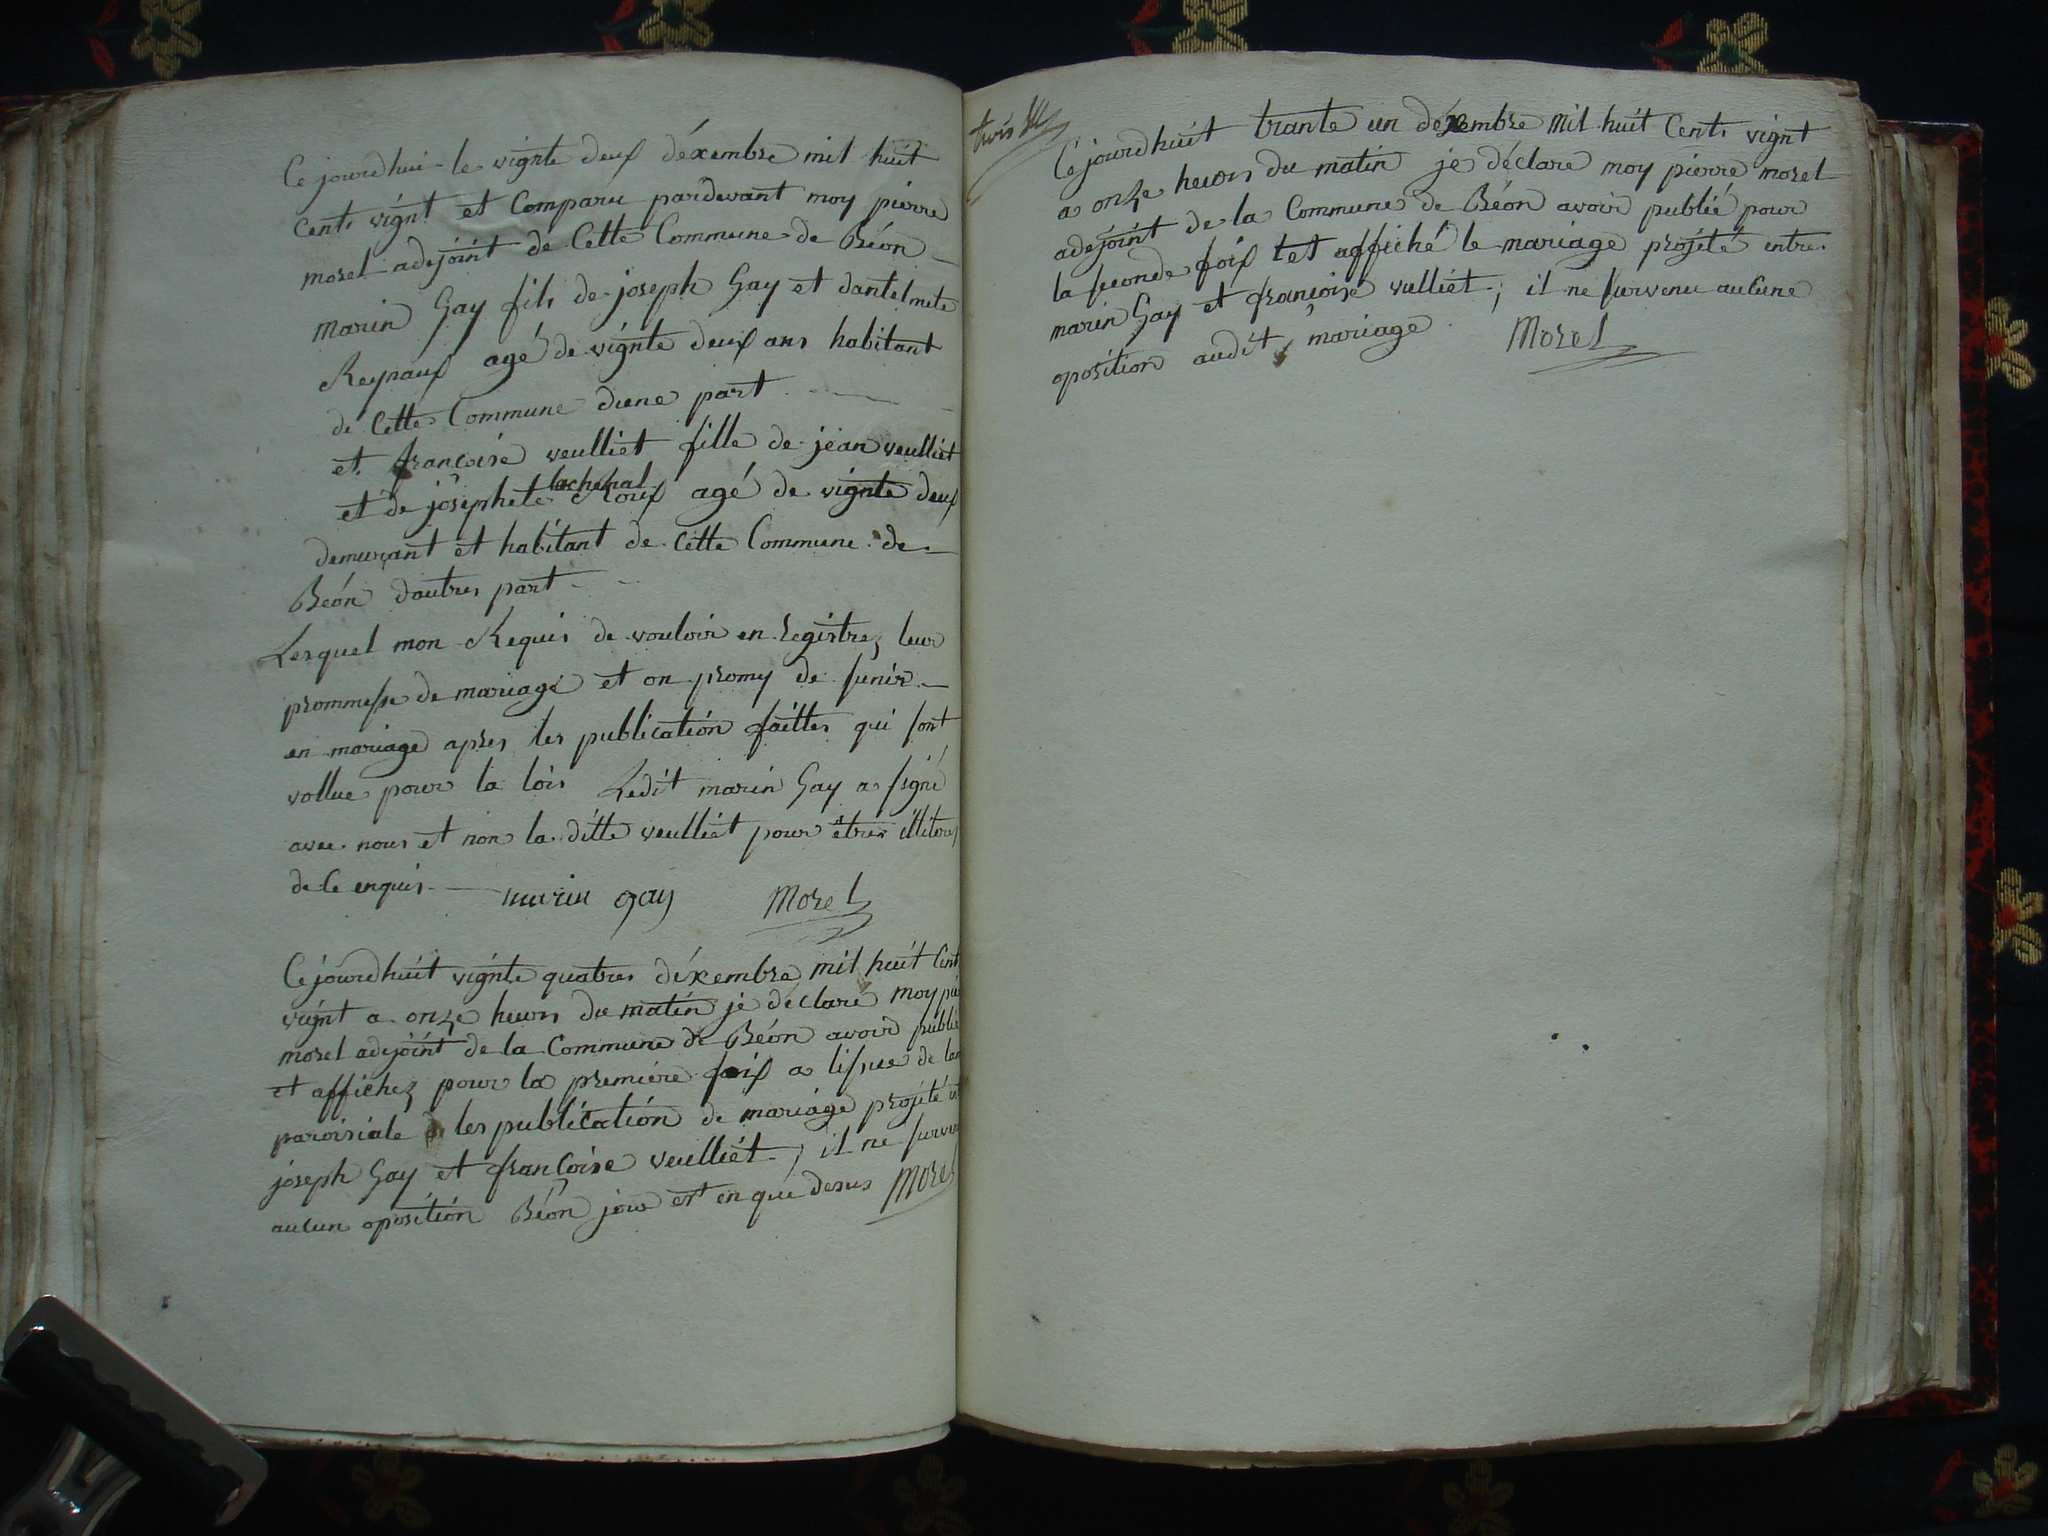 Ce jourdhui le vignte deux déxembre mil huit
Cents vignt et Comparu pardevant moy pierre
morel adejoint de Cette Commune de Béon
marin Gay fils de joseph Gay et dantelmete
Reynaux agé de vignte deux ans habitant
de Cette Commune dune part
et françoise veulliet fille de jean veulliet
lachenal
et de josephete Roux agé de vignte deux
demurant et habitant de Cette Commune de
Béon dautres part
Lesquel mon Requis de vouloir en Registrez leur
prommesse de mariage et on promy de sunir
en mariage apres les publication faittes qui sont
vollue pour la lois Ledit marin Gay a signé
avec nous et non la ditte veulliet pour êtres illiteres
de Ce enquis marin gay Morel
Ce jourdhuit vignte quatres déxembre mil huit Cent
vignt a onze heurs du matin je déclare moy pie
morel adejoint de la Commune de Béon avoir publié
et affichez pour la premiere foix a lisue de la
paroisiale les publication de mariage projeté
joseph Gay et françoise veulliet ; il ne surven
aucun oposition Béon jour est en que desus Morel
trois
Ce jourdhuit trante un déxembre mil huit Cents vignt
a onze heurs du matin je déclare moy pierre morel
adejoint de la Commune de Béon avoir publié pour
la seconde foix et affiché le mariage projeté entre
marin Gay et françoise vulliet ; il ne survenu auCune
oposition audit mariage Morel